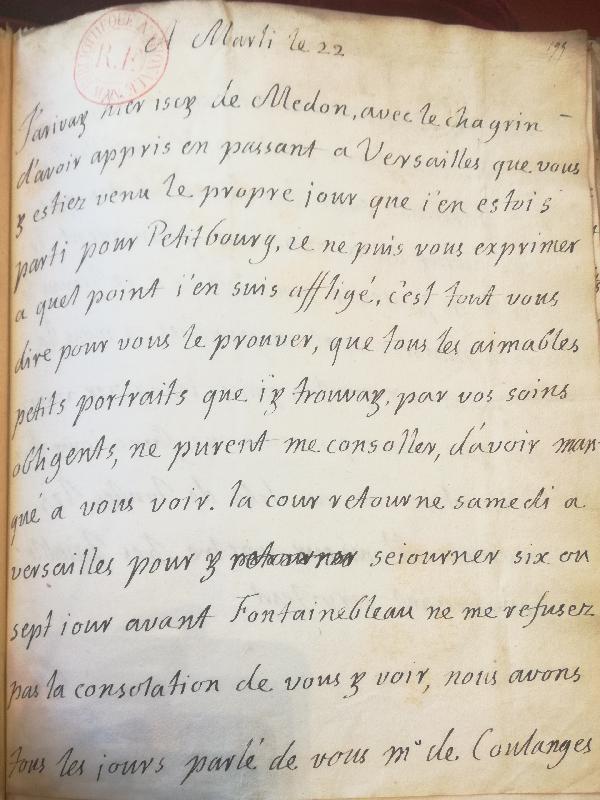 A Marli le 22
195
BIBLIOTHEQUE NATIONALE
R.F.
J'arivay hier iscy de Medon, avec le chagrin
d'avoir appris en passant a Versailles que vous
y estiez venu le propre jour que j'en estois
parti pour Petitbourg, ie ne puis vous exprimer
a quel point i'en suis affligé, c'est tout vous
dire pour vous le prouver, que tous les aimables
petits portraits que iy trouvay, par vos soins
obligents, ne purent me consoller, d'avoir man-
qué a vous voir. la cour retourne samedi a
versailles pour y retourner seiourner six ou
sept iour avant Fontainebleau ne me refusez
pas la consolation de vous y voir, nous avons
tous les jours parlé de vous me de Coulanges